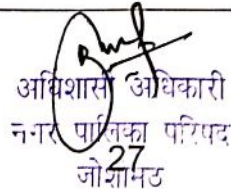 अधिशासी अधिकारी
नगर पालिका परिषद
27
जोशीमठ